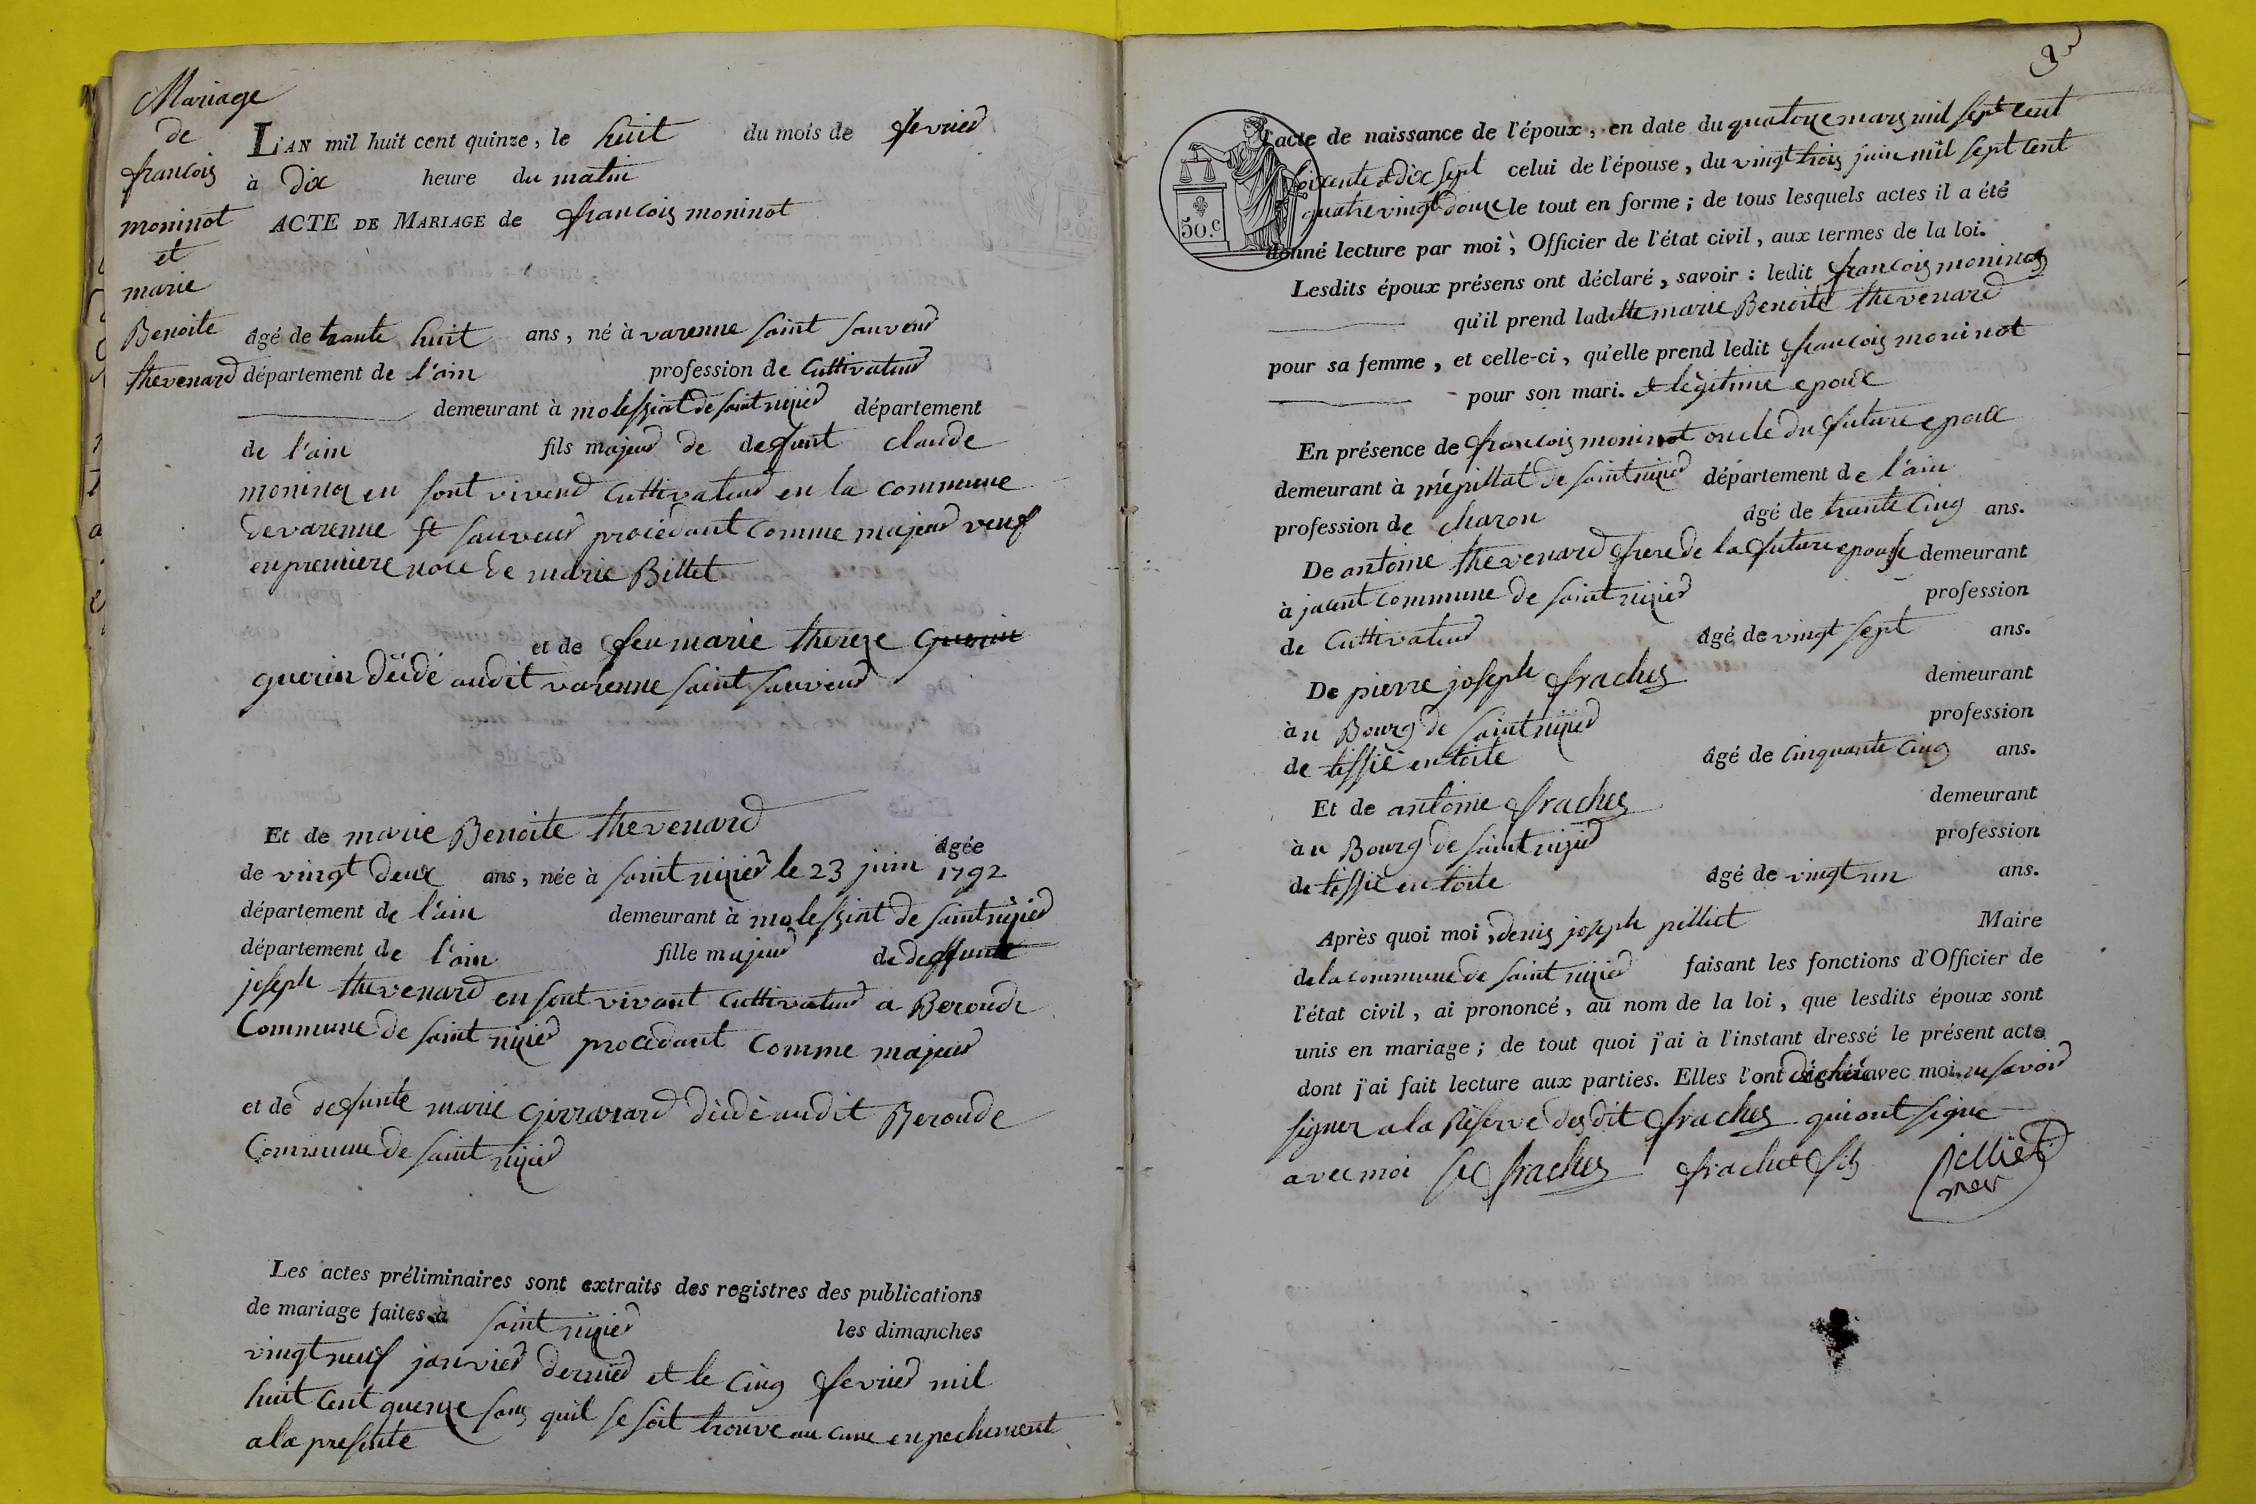 Mariage
de
francois
moninot
et
marie
Benoite
thevenard
L'AN mil huit cent quinze, le huit du mois de fevrier
à dix heure du matin
ACTE DE MARIAGE de francois moninot
âgé de trante huit ans, né à varenne saint sauveur
département de l'ain profession de Cultivateur
demeurant à molessiat de saint nizier département
de l'ain fils majeur de deffunt claude
moninot en sont vivend cultivateur en la commune
de varenne st sauveur procédant comme majeur veuf
en premiere noce de marie Billet
et de feu marie thereze guerin
guerin décidé audit varenne saint sauveur
Et de marie Benoite thevenard
âgée
de vingt deux ans, née à saint nizier le 23 juin 1792
département de l'ain demeurant à molessiat de saint nizier
département de l'ain fille majeur de deffunt
joseph thevenard en sont vivant cultivateur a Beroude
Commune de saint nizier procedant comme majeur
et de defunte marie girravard décidé audit Beroude
Commune de saint nizier
Les actes préliminaires sont extraits des registres des publications
de mariage faites à saint nizier les dimanches
vingt neuf janvier dernier et le cinq fevrier mil
huit cent quenze sans quil se soit trouve aucune enpechement
a la presente
3
50.c
l'acte de naissance de l'époux, en date du quatorze mars mil sept cent
soixante et dix sept celui de l'épouse, du vingt trois juin mil sept cent
quatre vingt douze le tout en forme; de tous lesquels actes il a été
donné lecture par moi, Officier de l'état civil, aux termes de la loi.
Lesdits époux présens ont déclaré, savoir: ledit francois moninot
qu'il prend ladite marie Benoite thevenard
pour sa femme, et celle-ci, qu'elle prend ledit francois moninot
pour son mari. et lègitime epoux
En présence de francois moninot oncle du future epoux
demeurant à mépillat de saint nizier département de l'ain
profession de charon âgé de trante cinq ans.
De antoine thevenard frere de la future epouse demeurant
à jacent commune de saint nizier profession
de Cultivateur âgé de vingt sept ans.
De pierre joseph frachez demeurant
àu Bourg de saint nizier profession
de tissié en toile âgé de cinquante cinq ans.
Et de antoine frachez demeurant
àu Bourg de saint nizier profession
de tissié en toile âgé de vingt un ans.
Après quoi moi, denis joseph pilliet Maire
de la commune de saint nizier faisant les fonctions d'Officier de
l'état civil, ai prononcé, au nom de la loi, que lesdits époux sont
unis en mariage; de tout quoi j'ai à l'instant dressé le présent acte
dont j'ai fait lecture aux parties. Elles l'ont avec moi. ne savoir
signer a la Réserve des dit frachez qui ont signe
avec moi frachez frachet fils pilliet
mer